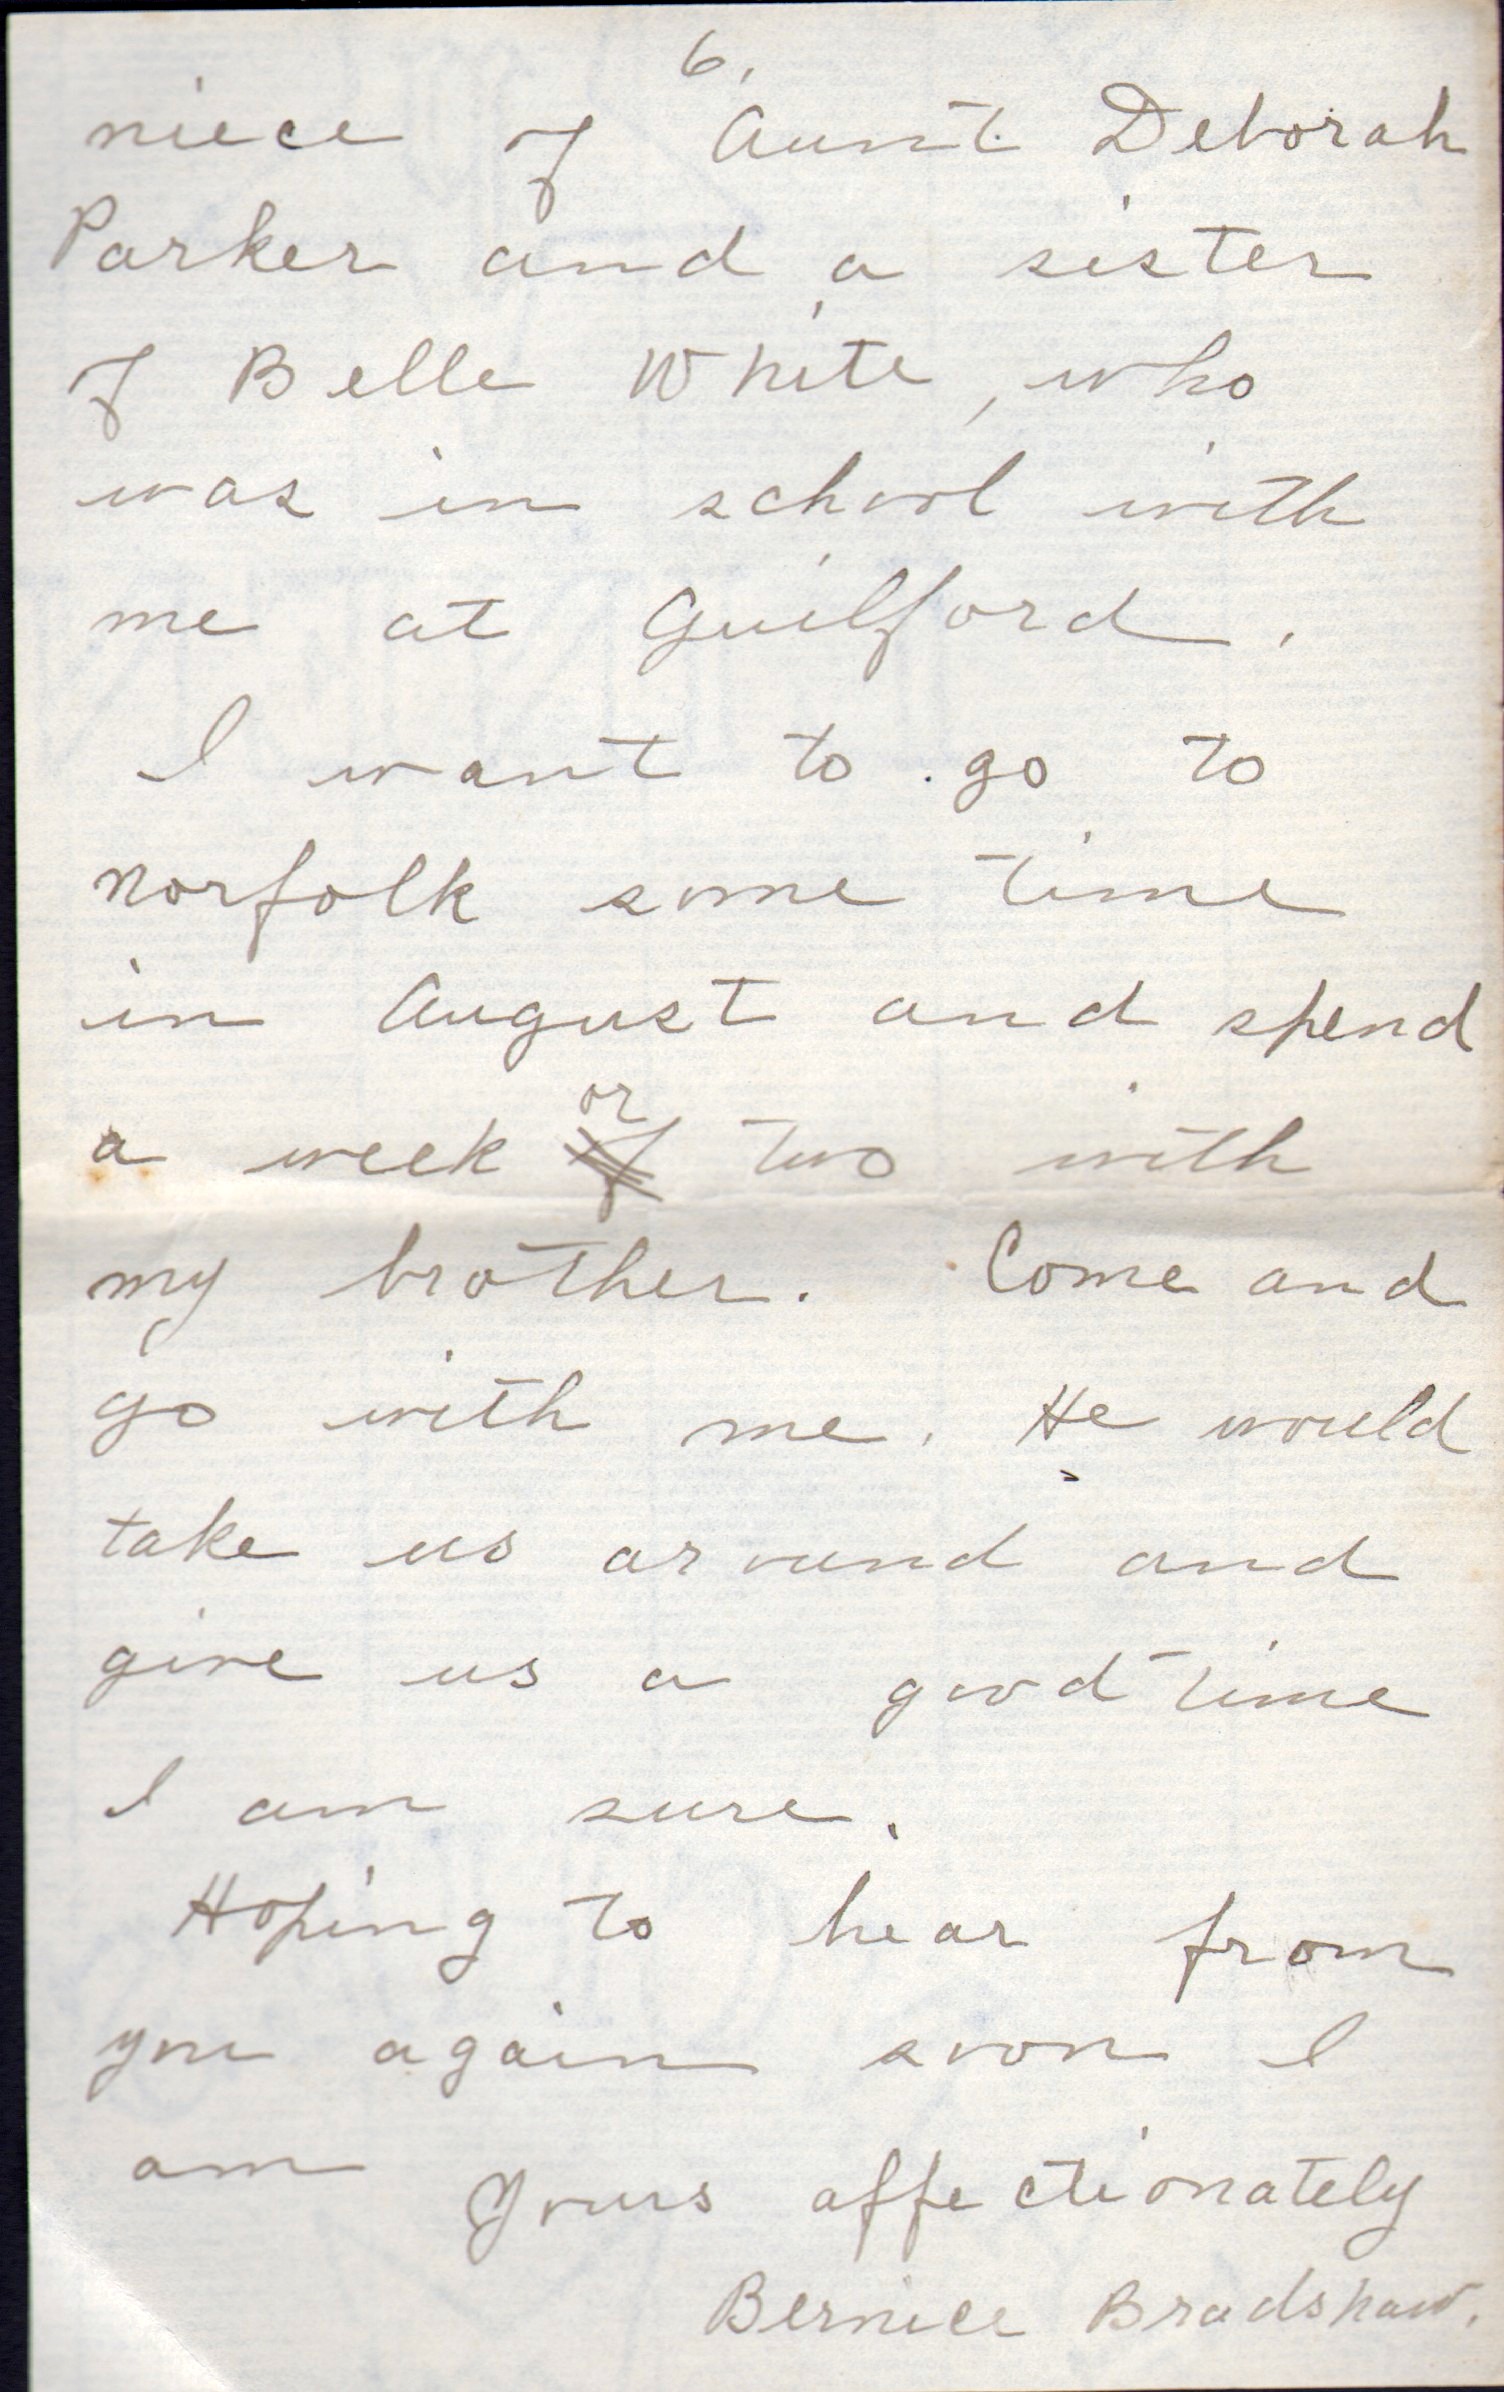 6.
niece of Aunt Deborah
Parker and a sister
of Belle White, who
was in school with
me at Guilford.
I want to go to
Norfolk some time
in August and spend
a week or two with
my brother. Come and
go with me. He would
take us around and
give us a good time
I am sure.
Hoping to hear from
you again soon I
am Yours affectionately
Bernice Bradshaw.